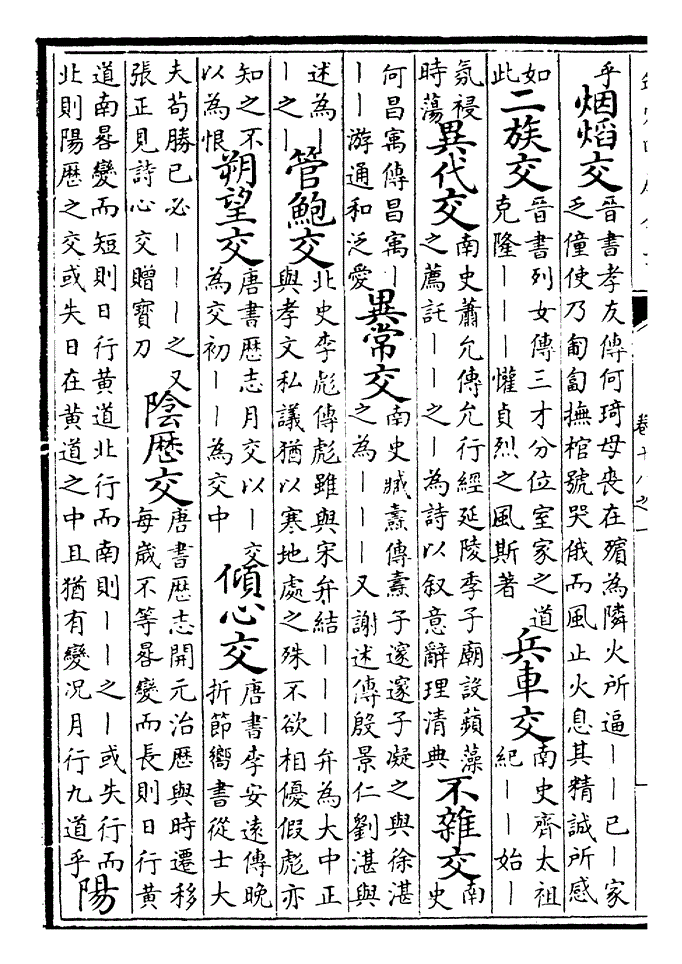 卷十八之一
乎
烟熖交
晉書孝友傳何琦母喪在殯為隣火所逼——已—家
乏僮使乃匍匐撫棺號哭俄而風止火息其精誠所感
如
此
二族交
晉書列女傳三才分位室家之道
克隆———懽貞烈之風斯著
兵車交
南史齊太祖
紀——始—
氛祲
時蕩
異代交
南史蕭允傳允行經延陵季子廟設蘋藻
之薦託——之—為詩以叙意辭理清典
不雜交
南
史
何昌寓傳昌寓—
——游通和泛愛
異常交
南史臧燾傳燾子邃邃子凝之與徐湛
之為———又謝述傳殷景仁劉湛與
述為—
—之—
管鮑交
北史李彪傳彪雖與宋弁結———弁為大中正
與孝文私議猶以寒地處之殊不欲相優假彪亦
知之不
以為恨
朔望交
唐書歴志月交以—交
為交初——為交中
傾心交
唐書李安遠傳晚
折節嚮書從士大
夫苟勝已必———之又
張正見詩心交贈寳刀
陰歴交
唐書歴志開元治歴與時遷移
每歲不等晷變而長則日行黄
道南晷變而短則日行黄道北行而南則——之—或失行而
北則陽歴之交或失日在黄道之中且猶有變況月行九道乎
陽